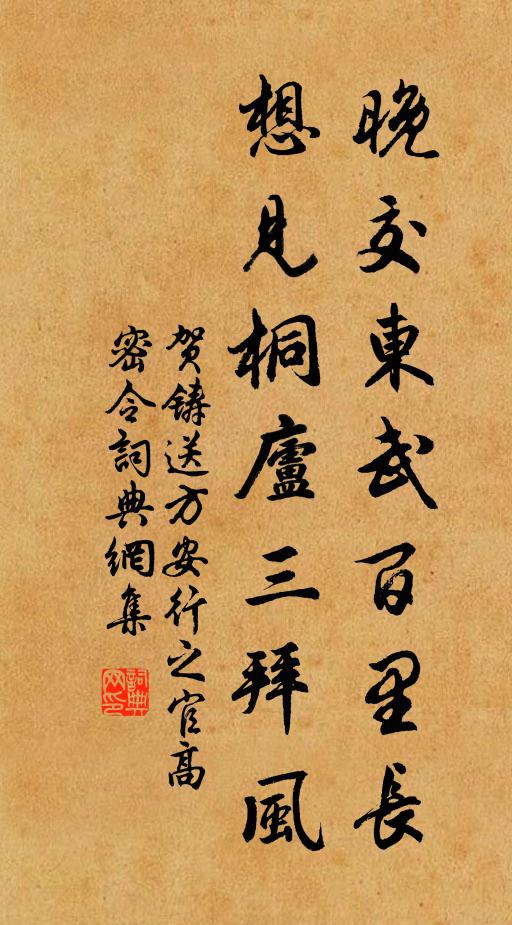 晚交東武百里長
想見桐廬三拜風
賀鑄送方安行之官高
密令詞典網集
詞典網印